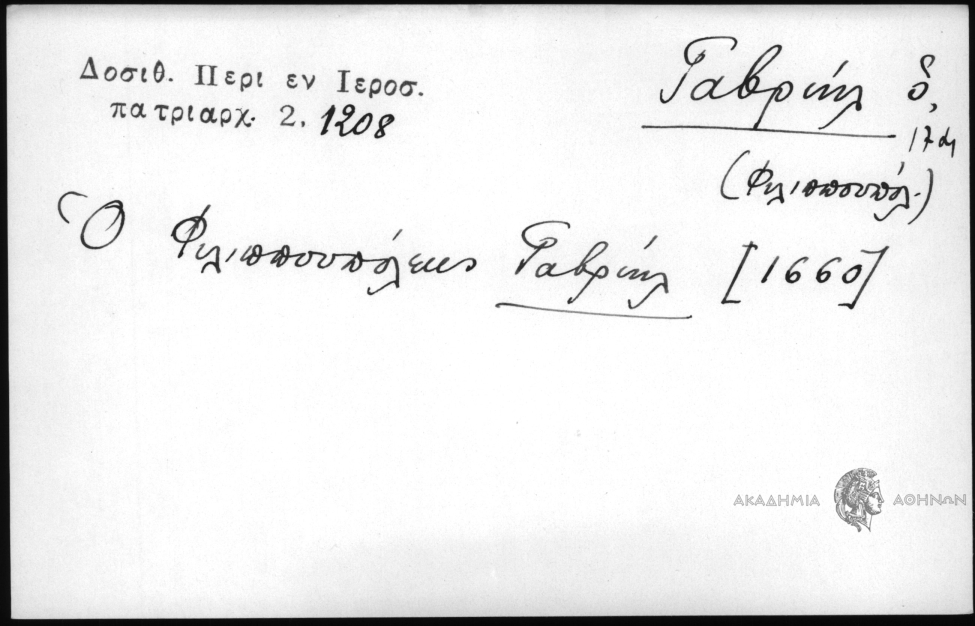 Δοσιθ. Περι εν Ιεροσ.
πατριαρχ. 2, 1208
Γαβριήλ ὁ,
17ος
(Φιλιππουπόλ.)
Ὁ Φιλιππουπόλεως Γαβριήλ [1660]
ΑΚΑΔΗΜΙΑ ΑΘΗΝΩΝ